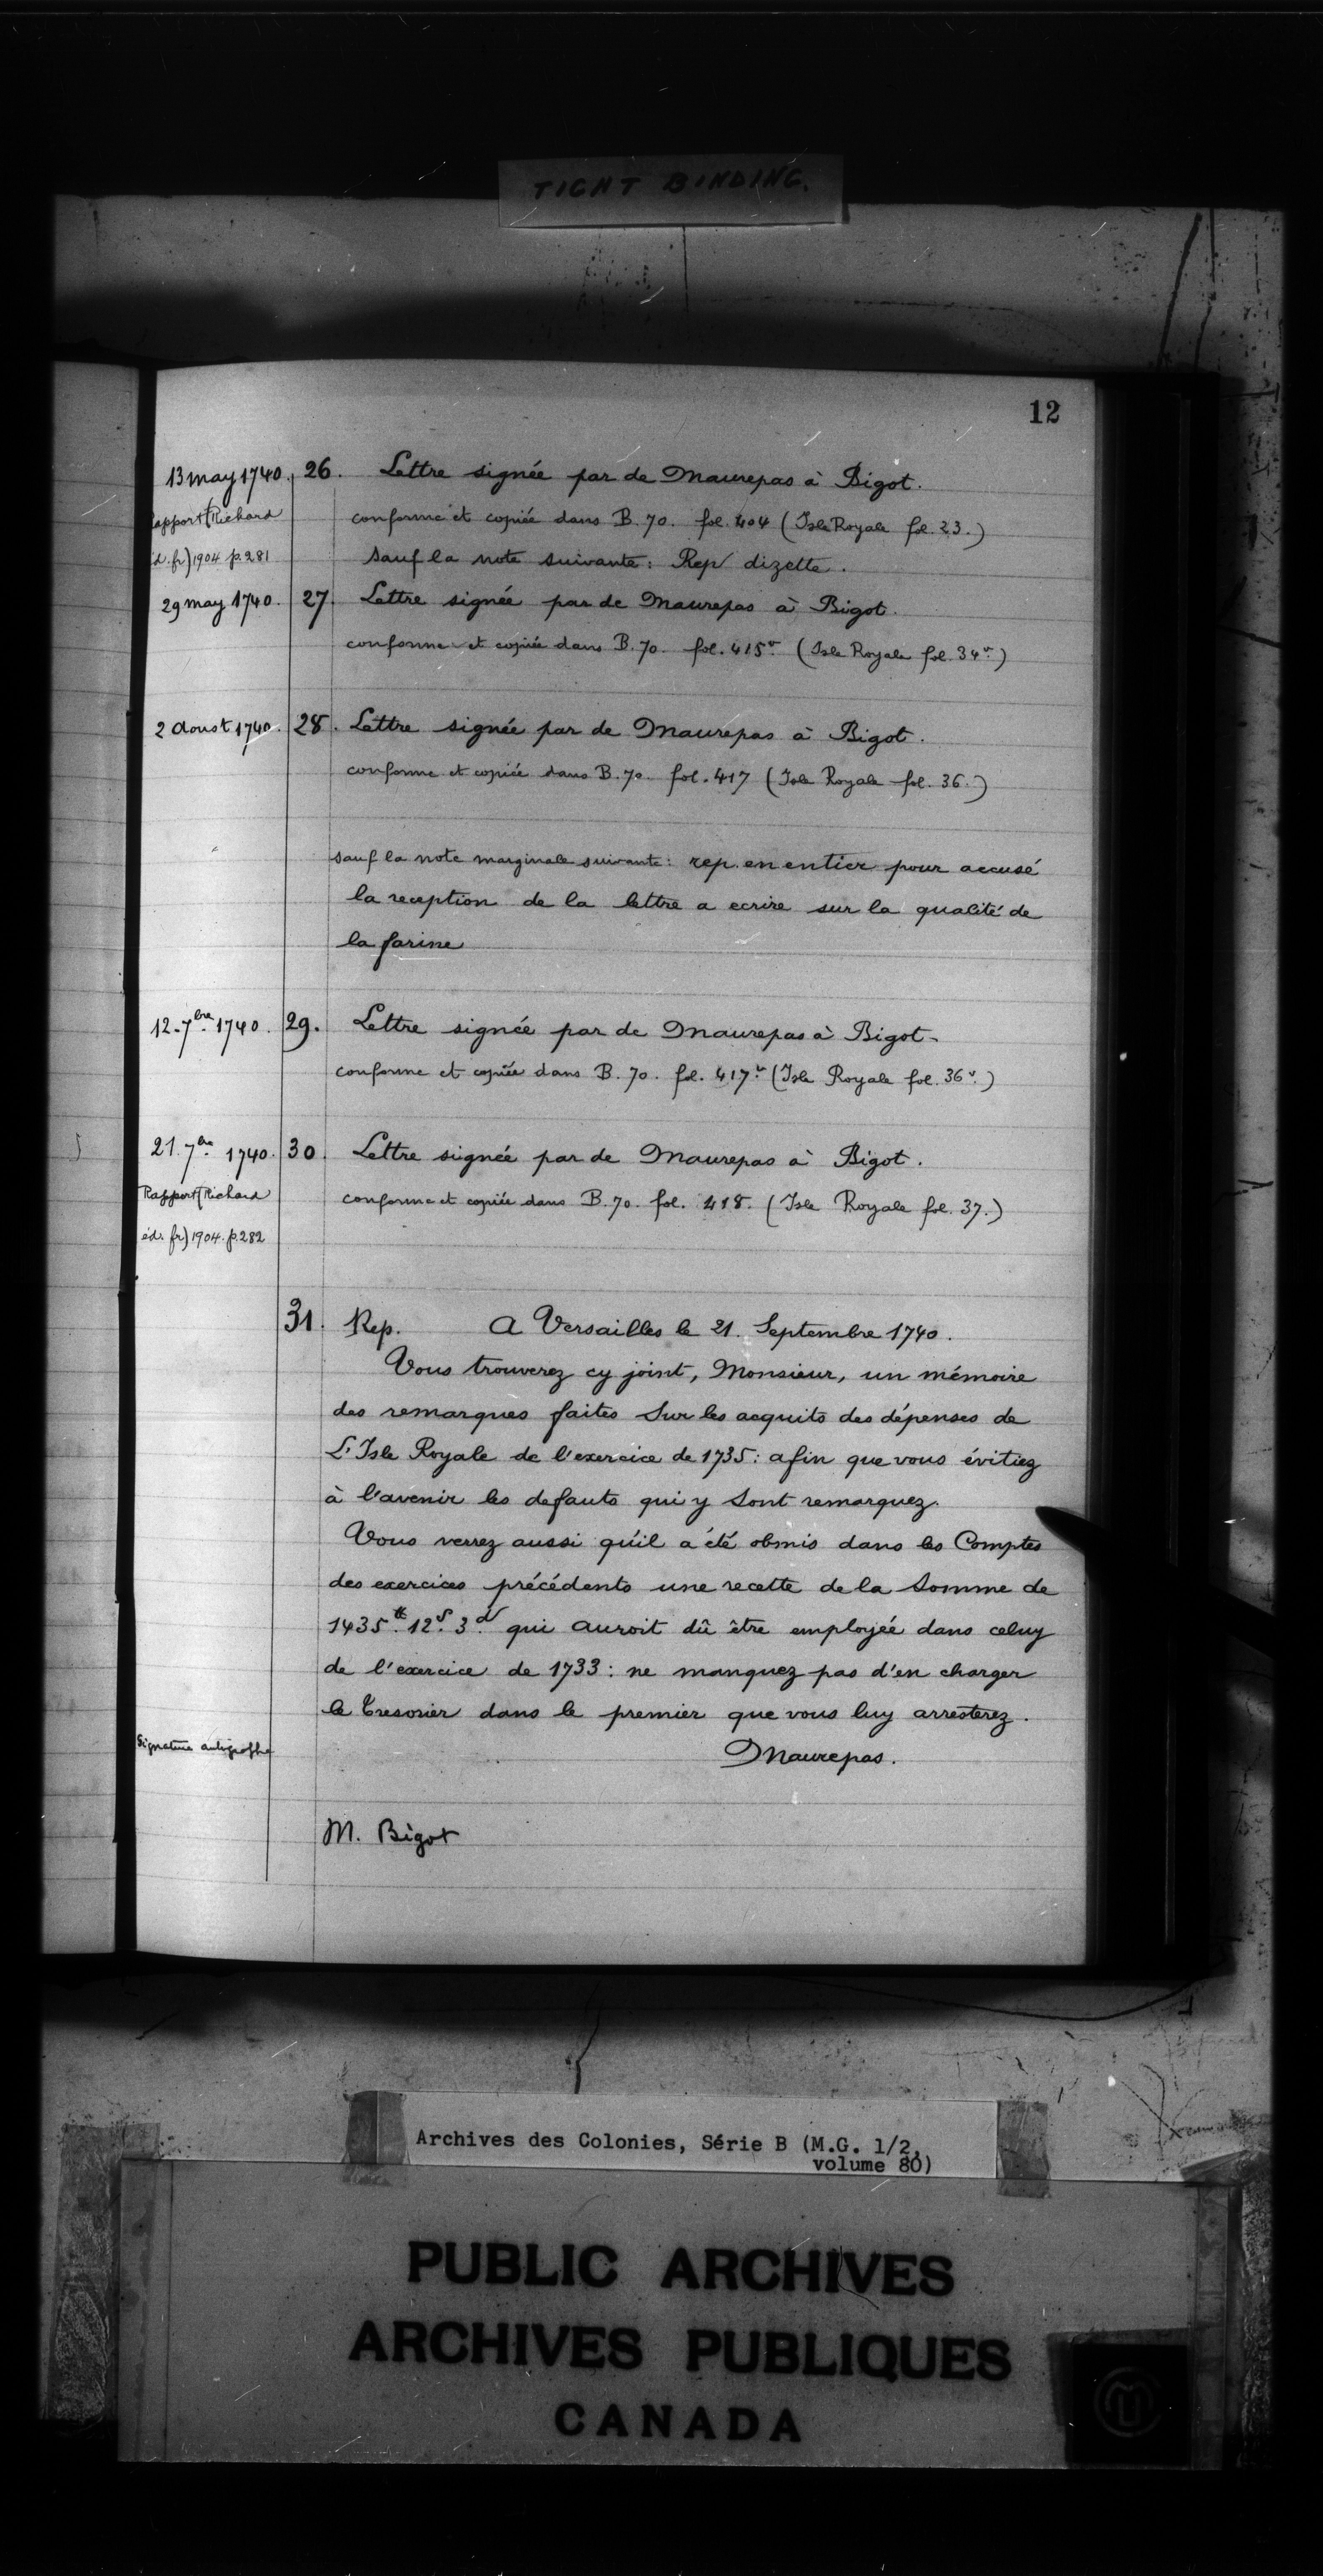 TIGHT BINDING.
12
13 may 1740. 26. Lettre signée par de Maurepas à Bigot.
Rapport (Richard conforme et copiée dans B. 70. fol. 404 (Isle Royale fol. 23.)
éd. fr) 1904 p. 281 sauf la note suivante: Rep dizette.
29 may 1740. 27. Lettre signée par de Maurepas à Bigot.
conforme et copiée dans B. 70. fol. 415v. (Isle Royale fol. 34v.)
2 Aoust 1740. 28. Lettre signée par de Maurepas à Bigot.
conforme et copiée dans B. 70. fol. 417 (Isle Royale fol. 36.)
sauf la note marginale suivante: rep. en entier pour accusé
la reception de la lettre a ecrire sur la qualité de
la farine
12. 7bre. 1740. 29. Lettre signée par de Maurepas à Bigot.
conforme et copiée dans B. 70. fol. 417v. (Isle Royale fol. 36v.)
21. 7bre. 1740. 30. Lettre signée par de Maurepas à Bigot.
Rapport (Richard conforme et copiée dans B. 70. fol. 418. (Isle Royale fol. 37.)
éd. fr) 1904. p. 282
31. Rep. A Versailles le 21. Septembre 1740.
Vous trouverez cy joint, Monsieur, un mémoire
des remarques faites sur les acquits des dépenses de
L'Isle Royale de l'exercice de 1735: afin que vous évitiez
à l'avenir les defauts qui y sont remarquez.
Vous verrez aussi qu'il a été obmis dans les Comptes
des exercices précédents une recette de la Somme de
1435tt. 12s. 3d. qui auroit dû être employée dans celuy
de l'exercice de 1733: ne manquez pas d'en charger
le Tresorier dans le premier que vous luy arresterez.
Signature autographe Maurepas.
M. Bigot
Archives des Colonies, Série B (M.G. 1/2,
volume 80)
PUBLIC ARCHIVES
ARCHIVES PUBLIQUES
CANADA